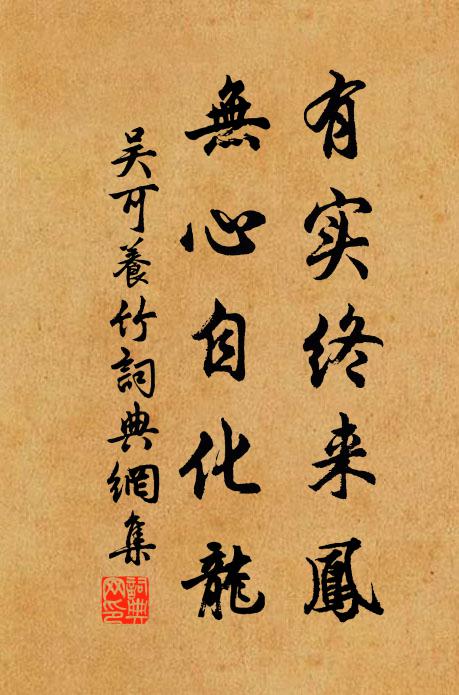 有实终来鳳
無心自化龍
吴可養竹詞典網集
詞典網印